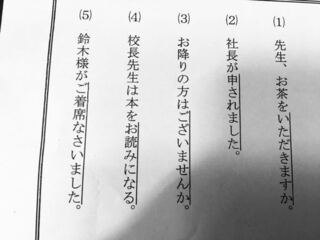 (1) 先生、お茶をいただきますか。
(2) 社長が申されました。
(3) お降りの方はございませんか。
(4) 校長先生は本をお読みになる。
(5) 鈴木様がご着席なさいました。